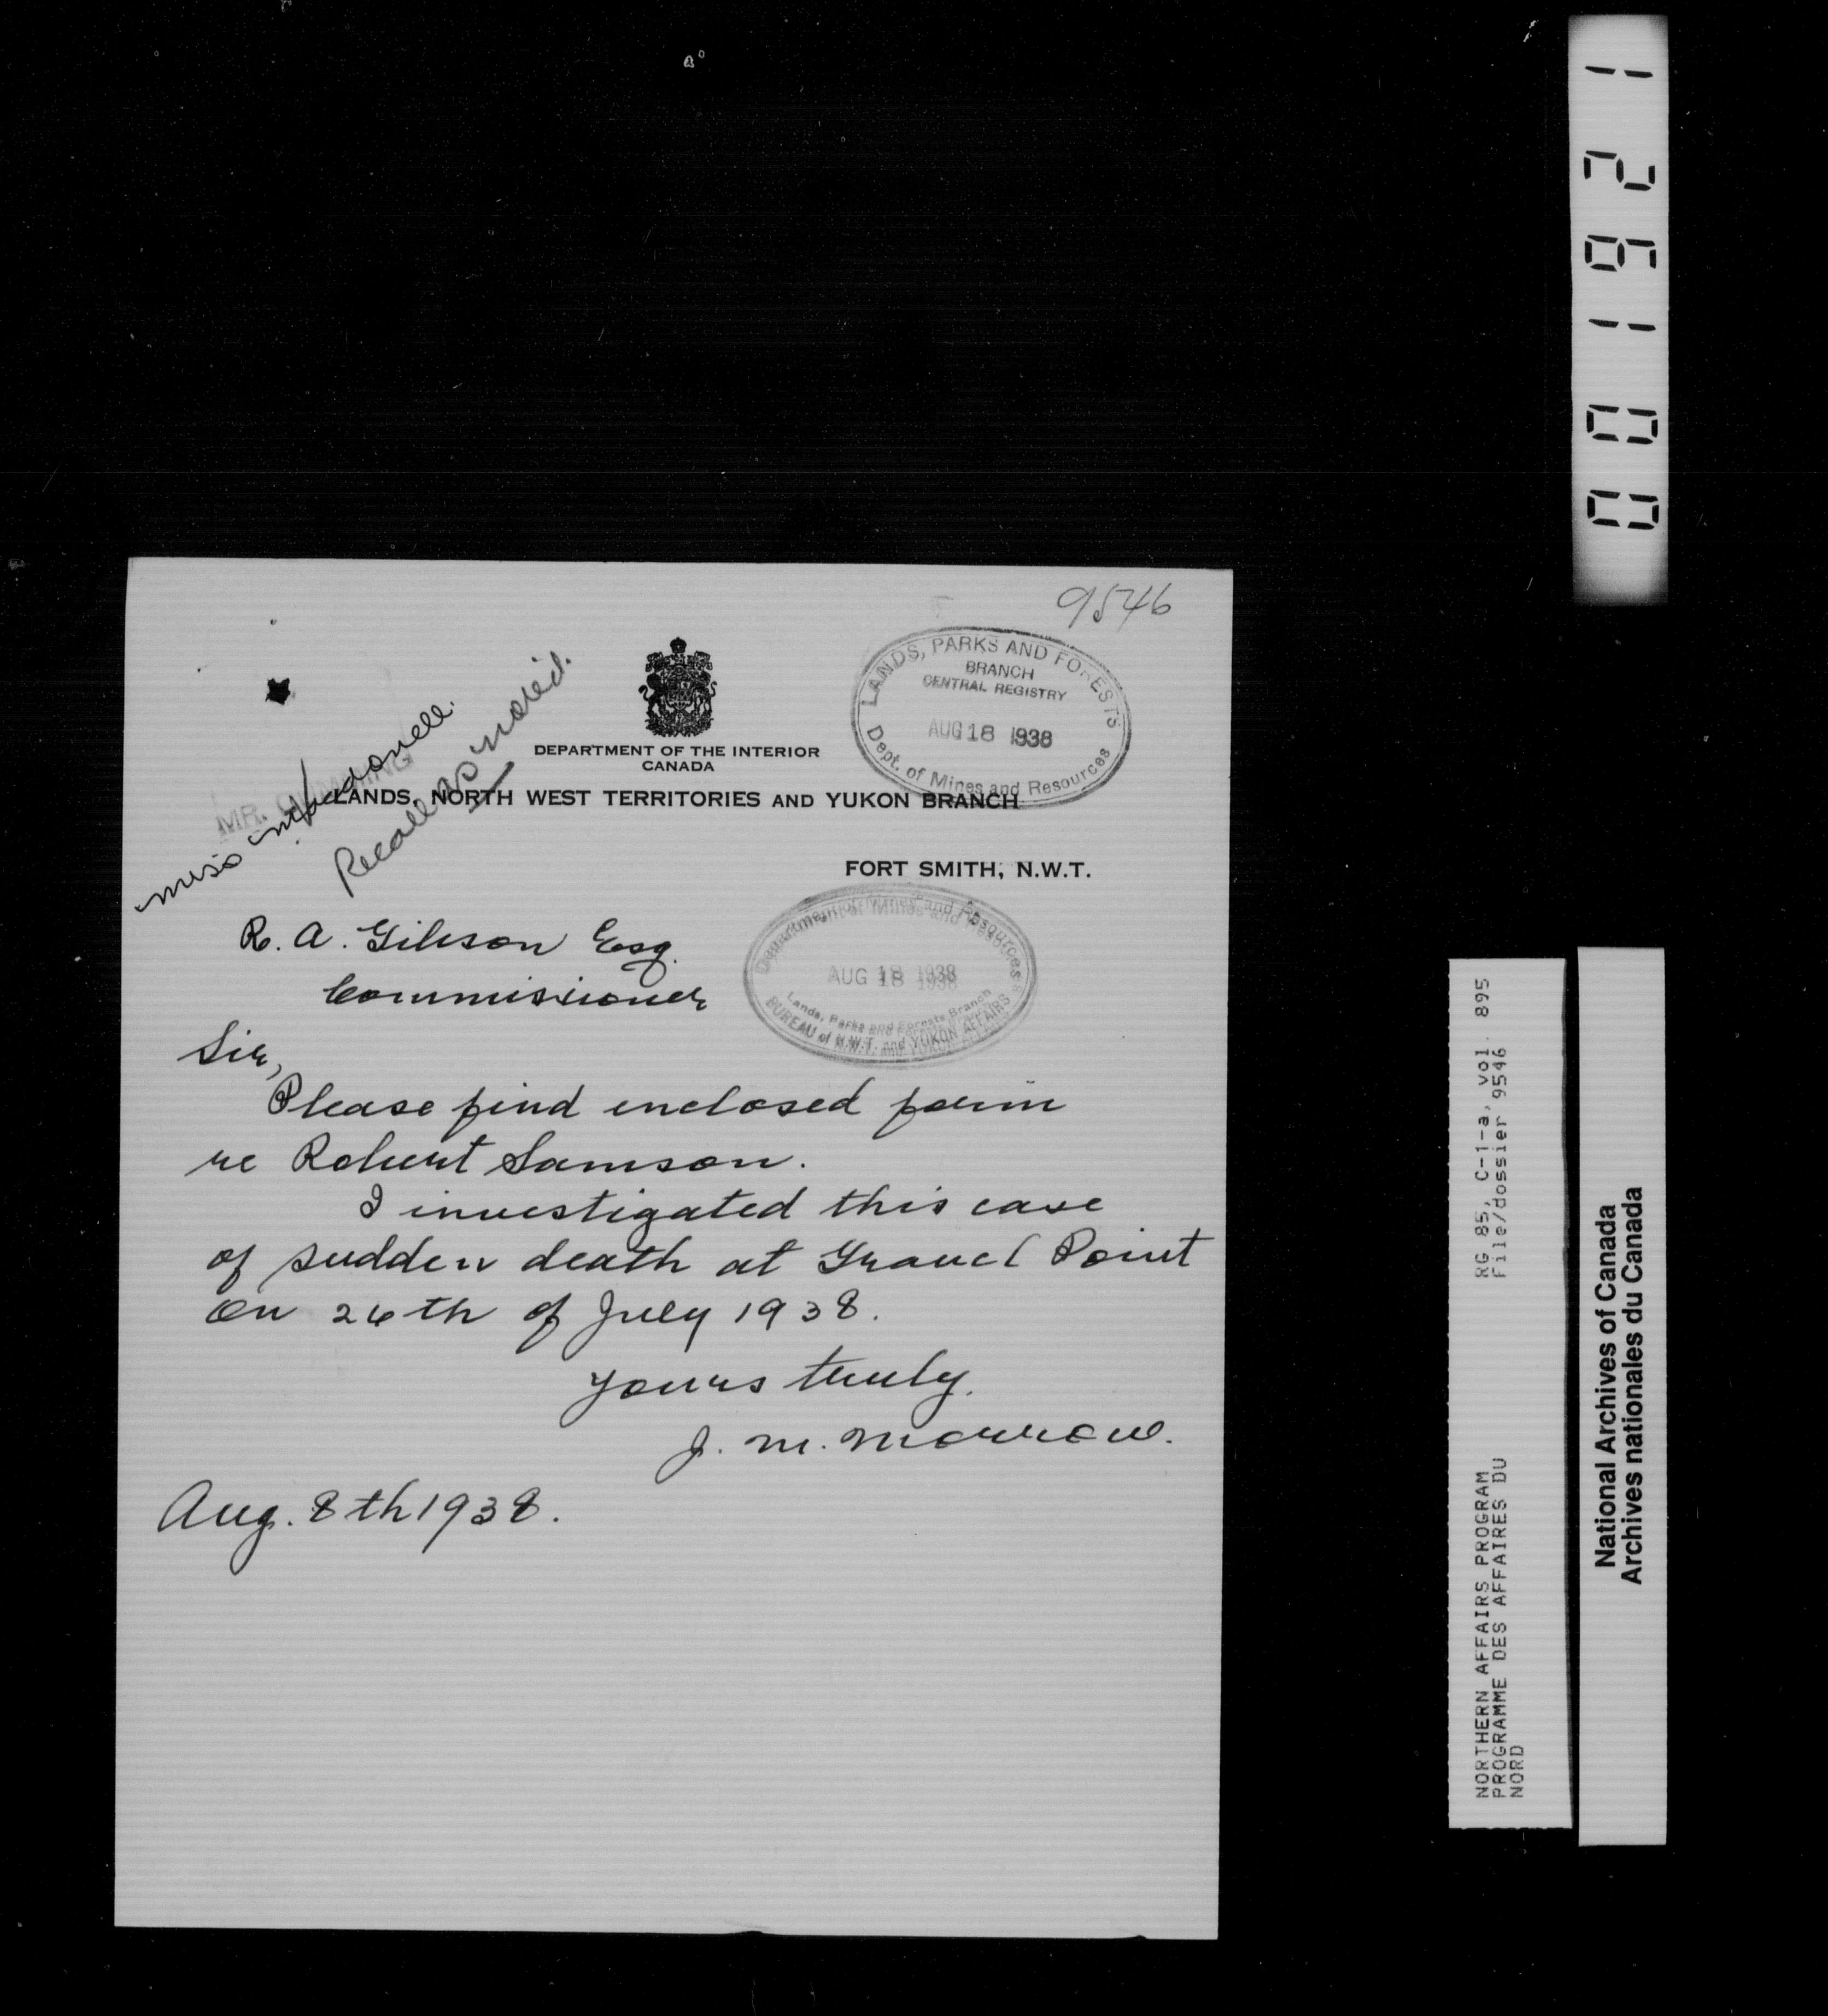 9546
LANDS, PARKS AND FORESTS
BRANCH
CENTRAL REGISTRY
AUG 18 1938
Dept. of Mines and Resources
DEPARTMENT OF THE INTERIOR
CANADA
LANDS, NORTH WEST TERRITORIES AND YUKON BRANCH
MR. CUMMING
Miss Macdonell.
Recall as noted.
FORT SMITH, N.W.T.
Department of Mines and Resources
AUG 18 1938
Lands, Parks and Forests Branch
BUREAU of N.W.T. and YUKON AFFAIRS
R. A. Gibson Esq.
Commissioner
Sir,
Please find enclosed form
re Robert Samson.
I investigated this case
of sudden death at Gravel Point
on 26th of July 1938.
Yours truly.
J. M. Morrow.
Aug. 8th 1938.
001921
RG 85, C-1-a, vol. 895
File/dossier 9546
NORTHERN AFFAIRS PROGRAM
PROGRAMME DES AFFAIRES DU
NORD
National Archives of Canada
Archives nationales du Canada